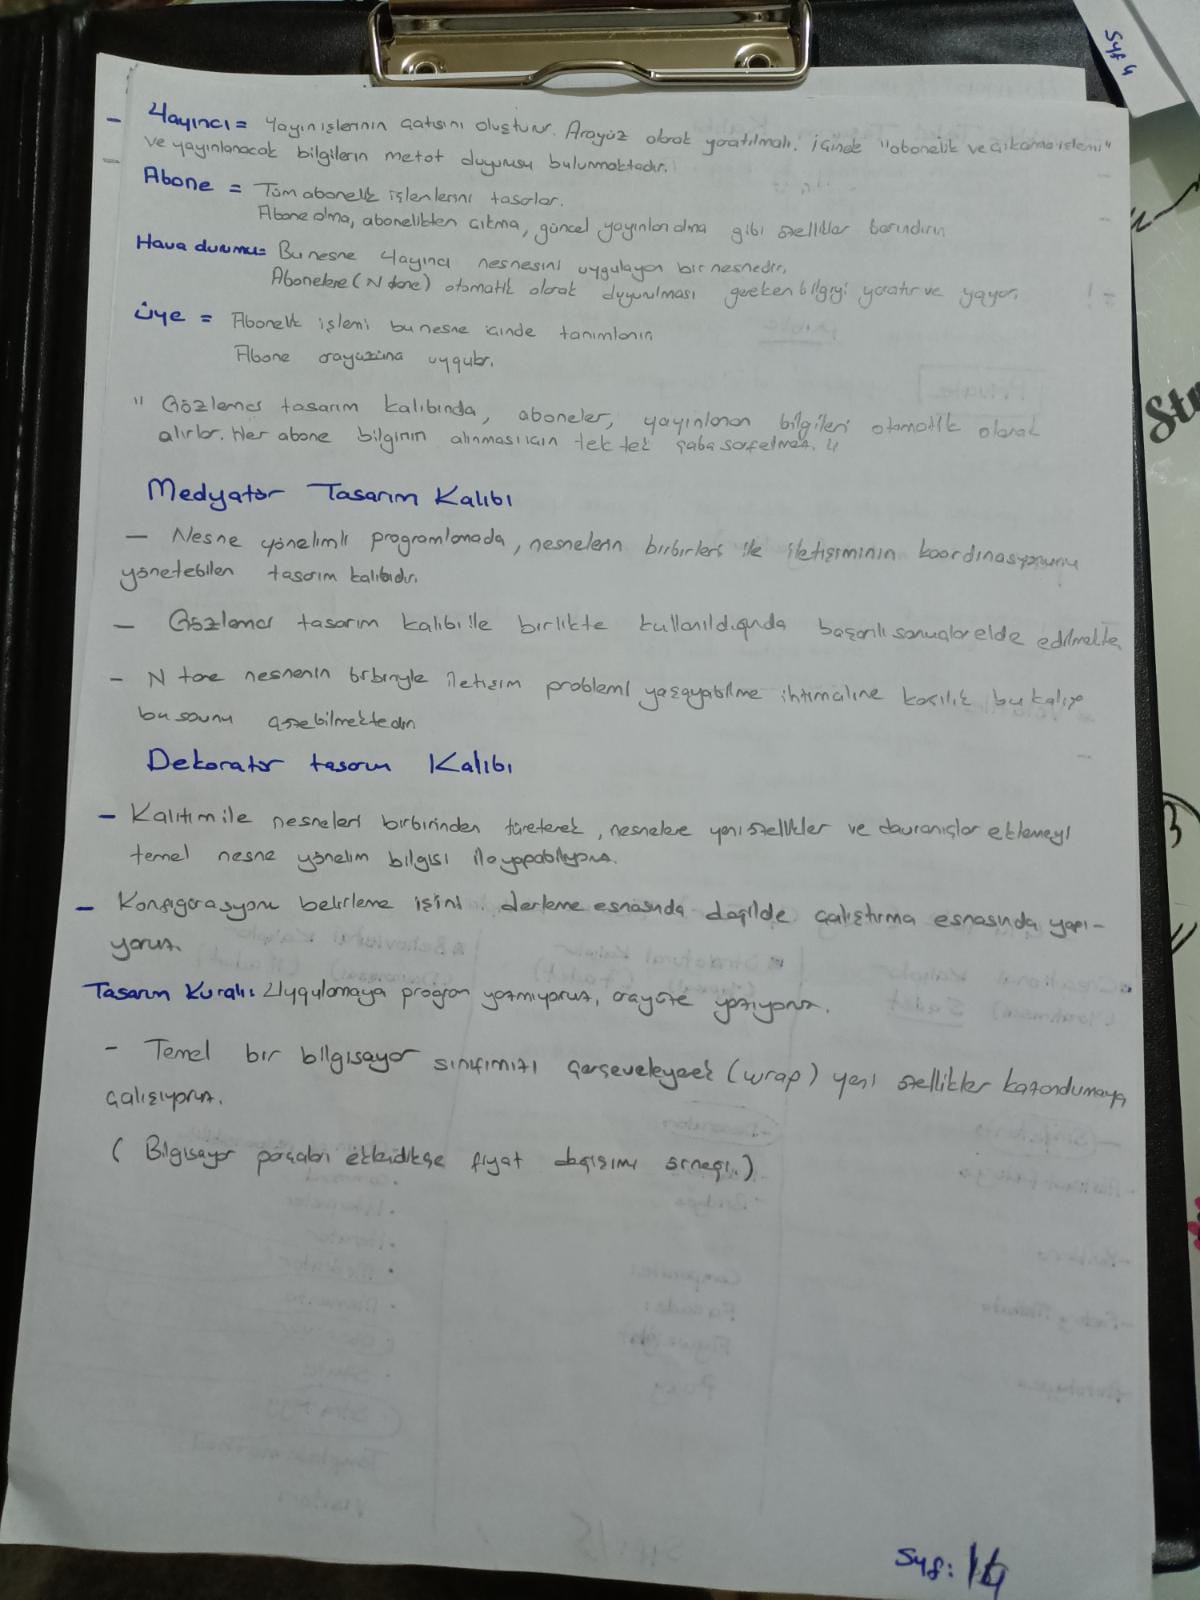 Syf 4
- Yayıncı = Yayın işlerinin çatısını oluşturur. Arayüz olarak yaratılmalı. İçinde "abonelik ve çıkarma işlemi"
ve yayınlanacak bilgilerin metot duyurusu bulunmaktadır.
Abone = Tüm abonelik işlemlerini tasarlar.
Abone olma, abonelikten çıkma, güncel yayınları alma gibi özellikler barındırır.
Hava durumu = Bu nesne Yayıncı nesnesini uygulayan bir nesnedir.
Abonelere (N tane) otomatik olarak duyurulması gereken bilgiyi yaratır ve yayar.
Üye = Abonelik işlemi bu nesne içinde tanımlanır.
Abone arayüzünü uygular.
" Gözlemci tasarım kalıbında, aboneler, yayınlanan bilgileri otomatik olarak
alırlar. Her abone bilginin alınması için tek tek çaba sarfetmez. "
Medyatör Tasarım Kalıbı
- Nesne yönelimli programlamada, nesnelerin birbirleri ile iletişiminin koordinasyonunu
yönetebilen tasarım kalıbıdır.
- Gözlemci tasarım kalıbı ile birlikte kullanıldığında başarılı sonuçlar elde edilmekte.
- N tane nesnenin birbiriyle iletişim problemi yaşayabilme ihtimaline karşılık bu kalıp
bu sorunu çözebilmektedir.
Dekoratör tasarım Kalıbı
- Kalıtım ile nesneleri birbirinden türeterek, nesnelere yeni özellikler ve davranışlar eklemeyi
temel nesne yönelim bilgisi ile yapabiliyoruz.
- Konfigürasyonu belirleme işini derleme esnasında değilde çalıştırma esnasında yapı-
yoruz.
Tasarım Kuralı: Uygulamaya program yazmıyoruz, arayüze yazıyoruz.
- Temel bir bilgisayar sınıfımızı çerçeveleyerek (wrap) yeni özellikler kazandırmaya
çalışıyoruz.
( Bilgisayar parçaları ekledikçe fiyat değişimi örneği.)
Syf: 14